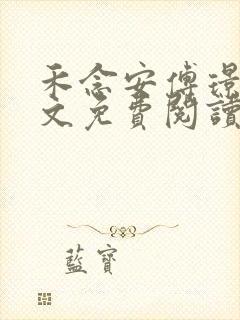 禾念安傅璟
文免費閱讀
藍寶